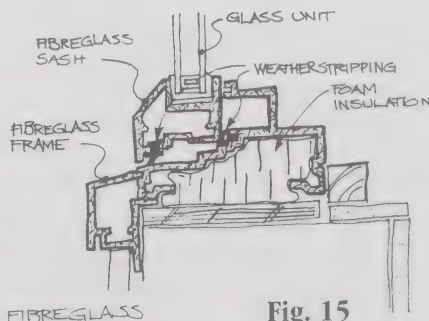 GLASS UNIT
FIBREGLASS
SASH
WEATHERSTRIPPING
FOAM
INSULATION
FIBREGLASS
FRAME
FIBREGLASS
Fig. 15